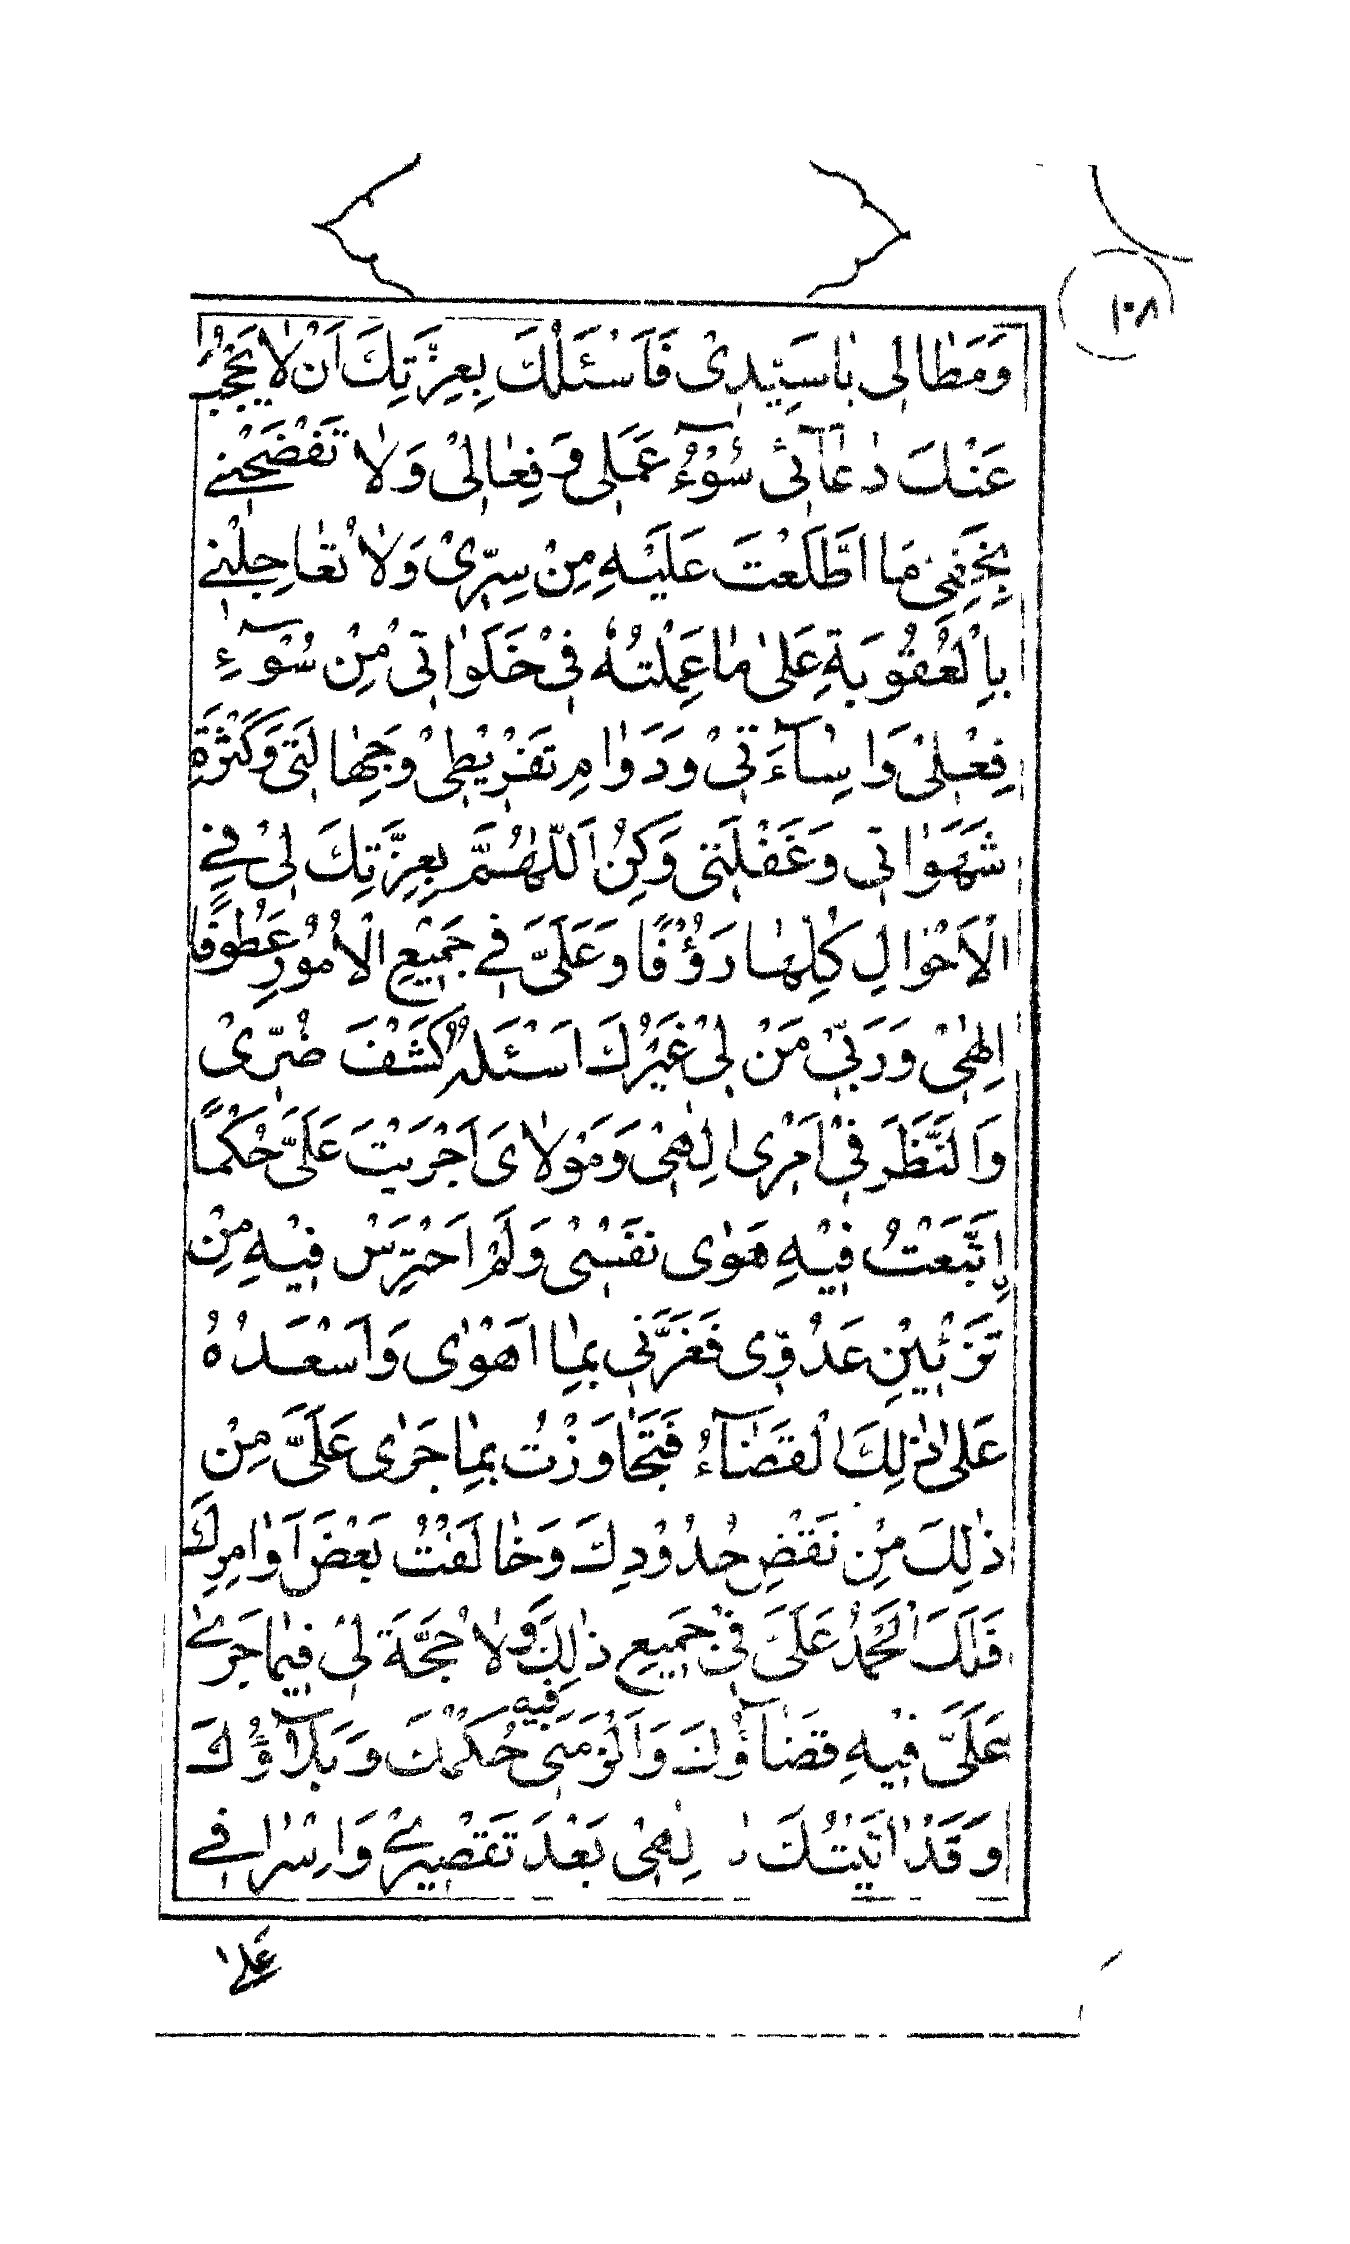 ١٠٨
وَمَطٰالى يٰاسَيِّدِىْ فَاَسْئَلُكَ بِعِزَّتِكَ اَنْ لٰا يَحْجُبَ
عَنْكَ دُعٰآئىْ سُوْٓءُ عَمَلى وَ فِعٰالىْ وَلٰا تَفْضَحْنى
بِخَفِىِّ مَا اطَّلَعْتَ عَلَيْهِ مِنْ سِرّىْ وَلٰا تُعٰاجِلْنى
بِالْعُقُوبَةِ عَلىٰ مٰا عَمِلْتُهُ فىْ خَلَوٰاتى مِنْ سُوْٓءِ
فِعْلىْ وَاِسٰآءَتىْ وَدَوٰامِ تَفْريْطىْ وَجَهٰالَتى وَكَثْرَةِ
شَهَوٰاتى وَغَفْلَتى وَكُنِ اَللّٰهُمَّ بِعِزَّتِكَ لىْ فى
الْاَحْوٰالِ كُلِّهٰا رَؤُفًا وَعَلَىَّ فى جَميْعِ الْاُمُوْرِ عَطُوفًا
اِلٰهىْ وَرَبّىْ مَنْ لىْ غَيْرُكَ اَسْئَلُهُ كَشْفَ ضُرّىْ
وَالنَّظَرَ فىْ اَمْرى اِلٰهىْ وَمَوْلٰاىَ اَجْرَيْتَ عَلَىَّ حُكْمًا
اِتَّبَعْتُ فيْهِ هَوٰى نَفْسىْ وَلَمْ اَحْتَرِسْ فيْهِ مِنْ
تَزْئينِ عَدُوّى فَغَرَّنى بِمٰا اَهْوٰى وَاَسْعَدَهُ
عَلىٰ ذٰلِكَ الْقَضٰآءُ فَتَجٰاوَزْتُ بِمٰا جَرٰى عَلَىَّ مِنْ
ذٰلِكَ مِنْ نَقْضِ حُدُوْدِكَ وَخٰالَفْتُ بَعْضَ اَوٰامِرِكَ
فَلَكَ الْحَمْدُ عَلَىَّ فىْ جَميعِ ذٰلِكَ وَلٰا حُجَّةَ لىْ فيمٰا جَرٰى
عَلَىَّ فيْهِ قَضٰآؤُكَ وَاَلْزَمَنى فيه حُكْمُكَ وَبَلٰآؤُكَ
وَقَدْ اَتَيْتُكَ يٰا اِلٰهىْ بَعْدَ تَقْصيرىْ وَاِسْرٰافى
عَلىٰ